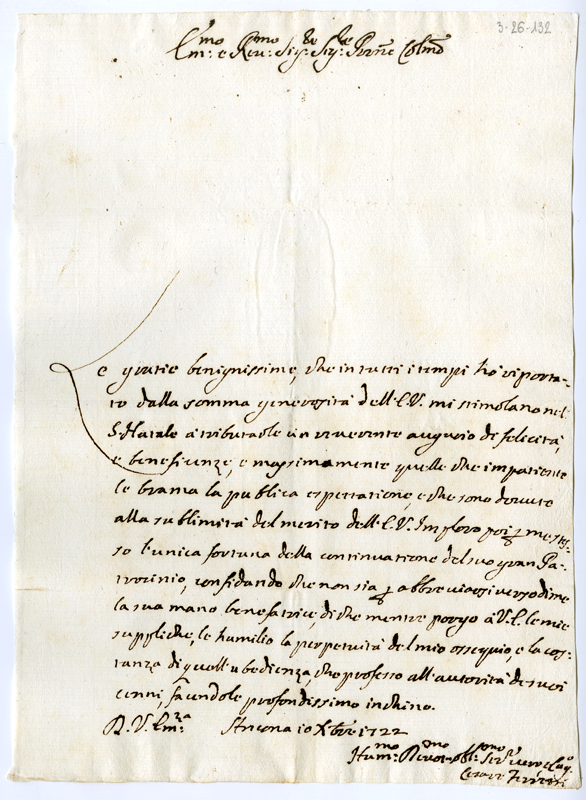 3-26-132
Em:mo e Rev:mo Sig:re Sig:re P'rone Colmo
Le gratie benignissime, che in tutti i tempi hò riporta-
to dalla somma generosità dell'E.V. mi stimolano nel
S. Natale à tributarle un riverente augurio di felicità,
e beneficenze, e massimamente quelle che impatiente
le brama la publica espettatione, e che sono dovute
alla sublimità del merito dell'E.V. Imploro poi p me stes-
so l'unica fortuna della continuatione del suo gran Pa-
trocinio, confidando che non sia p abbreviarsi verso di me
la sua mano benefatrice, di che mentre porgo à V.E. le mie
suppliche, le humilio la perpetuità del mio ossequio, e la cos-
tanza di quell'ubedienza, che professo all'autorità de suoi
cenni, facendole profondissimo inchino.
D. V. Em:za Ancona 10 Xbre 1722
Hum:mo Devot:mo obl:mo Ser:re vero
Cesare Ferretti